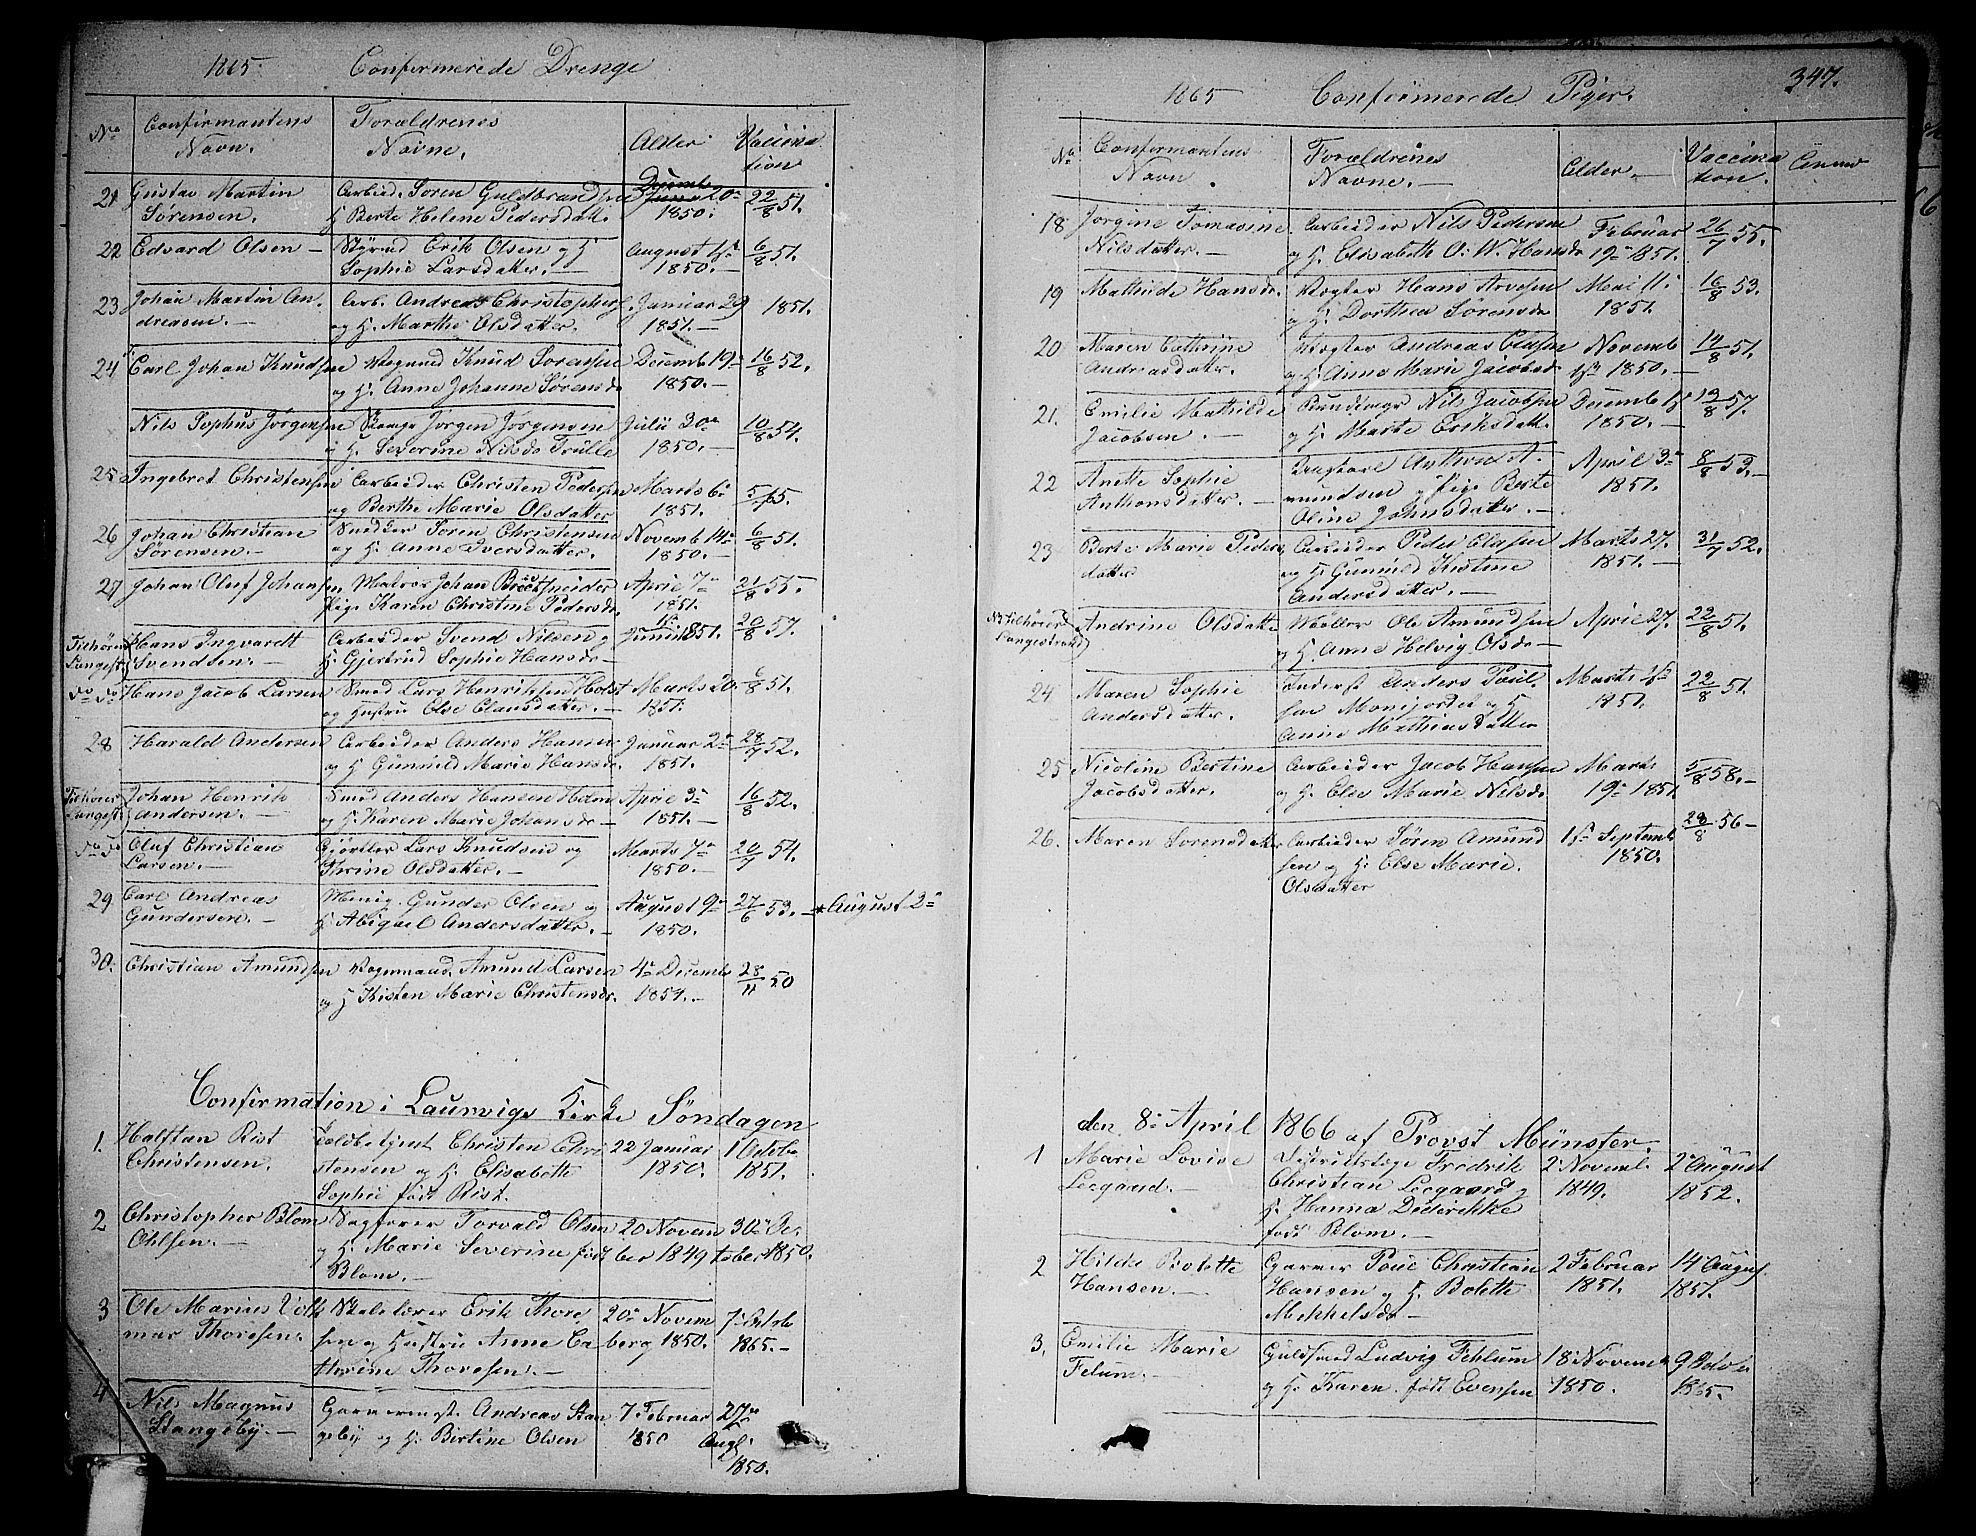 1865. Confirmerede Drenge
No Confirmantens Navn. Forældrenes Navne. Alder Vaccination
21 Gustav Martin Arbeid. Søren Guldbrandsen Decemb 20de 22/8 51.
Sørensen. H. Berte Helene Pedersdatt. 1850.
22 Edvard Olsen — Styrmd Erik Olsen og H August 1st 6/8 51.
Sophie Larsdatter. — 1850. —
23 Johan Martin An- Arb. Andreas Christophers. Januar 29 1851.
dreasen. — og H. Marthe Olsdatter. 1851. —
24 Carl Johan Knudsen Vognmd Knud Sørensen Decemb 19de 16/8 52.
og H. Anne Johanne Sørensd. 1850. —
Nils Sophus Jørgensen Jørgen Jørgensen Julii 30te 10/8 54.
og H. Severine Nilsd. Trulle 1850. —
25 Ingebret Christensen Arbeider Christen Pedersen Marts 6te 5/ 65.
og Berthe Marie Olsdatter 1851.
26 Johan Christian Snedker Søren Christensen Novemb 14de 6/8 51.
Sørensen. — og H. Anne Iversdatter. 1850. —
27 Johan Oluf Johansen Matros Johan Breetsneider April 7de 21/8 55.
Pige Karen Christine Pedersd. 1851.
Tilhører Hans Ingvardt Arbeider Svend Nilsen og Junii 1st 1851. 20/8 57.
Langest. Svendsen. — H. Gjertrud Sophie Hansd. —
Do Do Hans Jacob Larsen Smed Lars Henriksen Holst Marts 20. 6/8 51.
og Hustru Else Clausdatter. — 1851.
28 Harald Andersen Arbeider Anders Hansen Januar 2de 28/7 52.
og H. Gunnild Marie Hansd. 1851.
Tilhører Johan Henrik Smed Anders Hansen Holm April 3de 16/8 52.
Langest. Andersen. — og H. Karen Marie Johansd. — 1851. —
Do Do Oluf Christian Gjørtler Lars Knudsen og Marts 7de 20/7 54.
Larsen. — Thrine Olsdatter. — 1850. —
29 Carl Andreas Menig. Gunder Olsen og August 9de 27/6 53. — * August 2de
Gundersen. — H. Abigael Andersdatter. — 1850.
30. Christian Amundsen Vognmand. Amund Larsen 4de Decemb 28/11 50
og H Kisten Marie Christensd. 1854. —
Confirmation i Laurvigs Kirke Søndagen
1. Halftan Rist Toldbetjent Christen Chri- 22 Januar 1 Octobr
Christensen. stensen og H. Elisabette 1850. 1851.
Sophie født Rist.
2 Christopher Blom Sagfører Torvald Olsen 20 Novem 30te Oc-
Ohlsen. — og H. Marie Severine født ber 1849 tober 1850.
Blom. —
3 Ole Marius Volk Skolelærer Erik Thore 20de Novem 7de Octob
mar Thoresen. sen og Hustru Anne Ca berg 1850. 1865. —
thrine Thoresen. —
4 Nils Magnus Garverm. Andreas Stan 7 Februar 27de
Stangeby. — geby og H. Birtine Olsen 1850 Augl.
1850.
1865 Confirmerede Piger. 347.
No Confirmantens Navn. Forældrenes Navne. — Alder. — Vaccination. Anm
18 Jorgine Tomasine Arbeider Nils Pedersen Februar 26/7 55.
Nilsdatter. og H. Elisabeth O. W. Hansd. 19de 1851.
19 Mathilde Hansd. Vægter Hans Arvesen Mai 11. 16/8 53.
og H. Dorthea Sørensd. 1851.
20 Maren Cathrine Vægter Andreas Olasen Novemb 14/8 51.
Andreasdatter. og H. Anne Marie Jacobsd. 1ste 1850. —
21. Emilie Mathilde Nils Jacobsen Decemb 1st 19/8 57.
Jacobsen. — og H. Marte Eriksdatt. 1850. —
22 Anette Sophie Anthon A- April 3de 8/8 53. —
Anthonsdatter. — mundsen og Pige Berte 1851.
Oline Johnsdatter. —
23 Berte Marie Peders Arbeider Peder Olasen Marts 27. 31/7 52.
datter og H Gunnild Kistine 1851. —
Andersdatter. —
NB Tilhører Andrine Olsdatte Møller Ole Amundsen April 27. 22/8 51.
Langestrand og H. Anne Helvig Olsd. —
24 Maren Sophie Inderst Anders Poul- Marts 1st 22/8 51.
Andersdatter. sen Monejordet og H 1851.
Anne Mathiasdatter
25 Nicoline Bertine Arbeider Jacob Hansen Marts 5/8 58. —
Jacobsdatter. og H. Else Marie Nilsd. 19de 1851.
26. Maren Sørensdatter Arbeider Søren Amund 1st Septemb 28/8 56 —
sen og H. Else Marie. 1850.
Olsdatter
den 8de April 1866 af Provst Münster.
1 Marie Lovise Districtslæge Fredrik 2 Novemb. 2de August
Leegaard. — Christian Leegaard og 1849. 1852.
H. Hanna Diderikke
født Blom. —
2 Hilda Bolette Garver Poul Christian 2 Februar 14de August
Hansen. — Hansen og H. Bolette 1851. 1851.
Mekkelsd.
3. Emilie Marie Guldsmed Ludvig Fehlum 18de Novemb 9 Octob
Felum. — og H. Karen. født Evensen 1850. 1865.